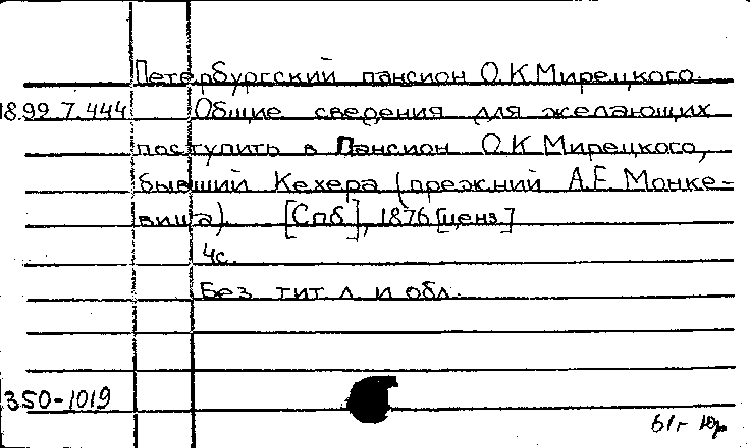 Петербургский пансион О.К.Мирецкого.
18.99.7.444 Общие сведения для желающих
поступить в Пансион О.К.Мирецкого,
бывший Кехера (прежний А.Е. Монке-
вица). [Спб], 1876 [ценз.]
4с.
Без тит.л. и обл.
350-1019